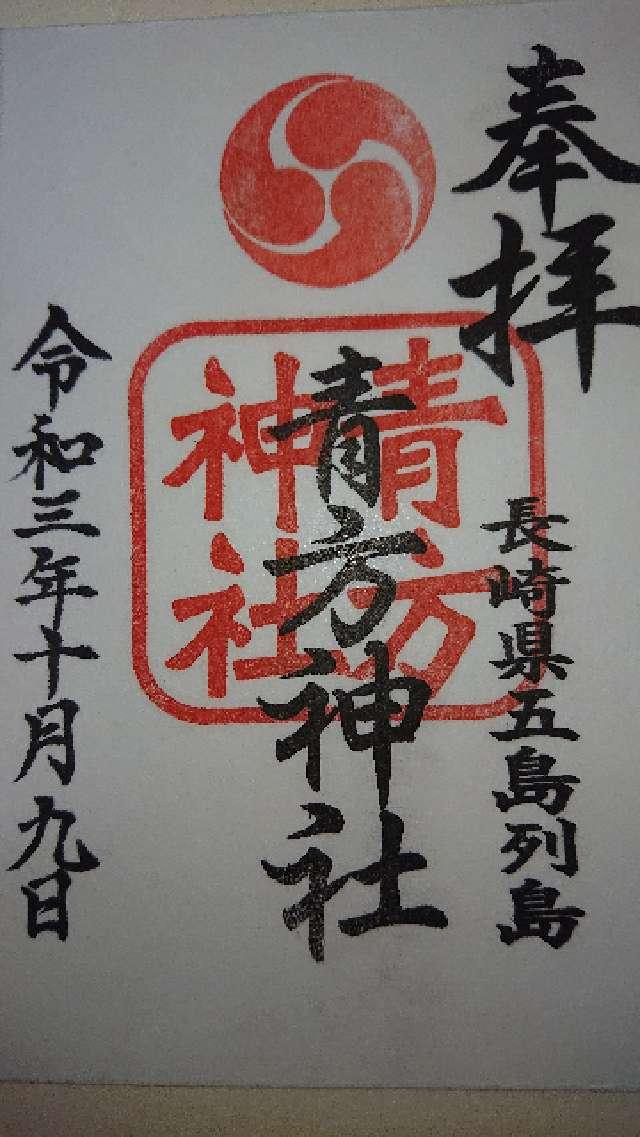 奉拝
長崎県五島列島
青方神社
青方
神社
令和三年十月九日